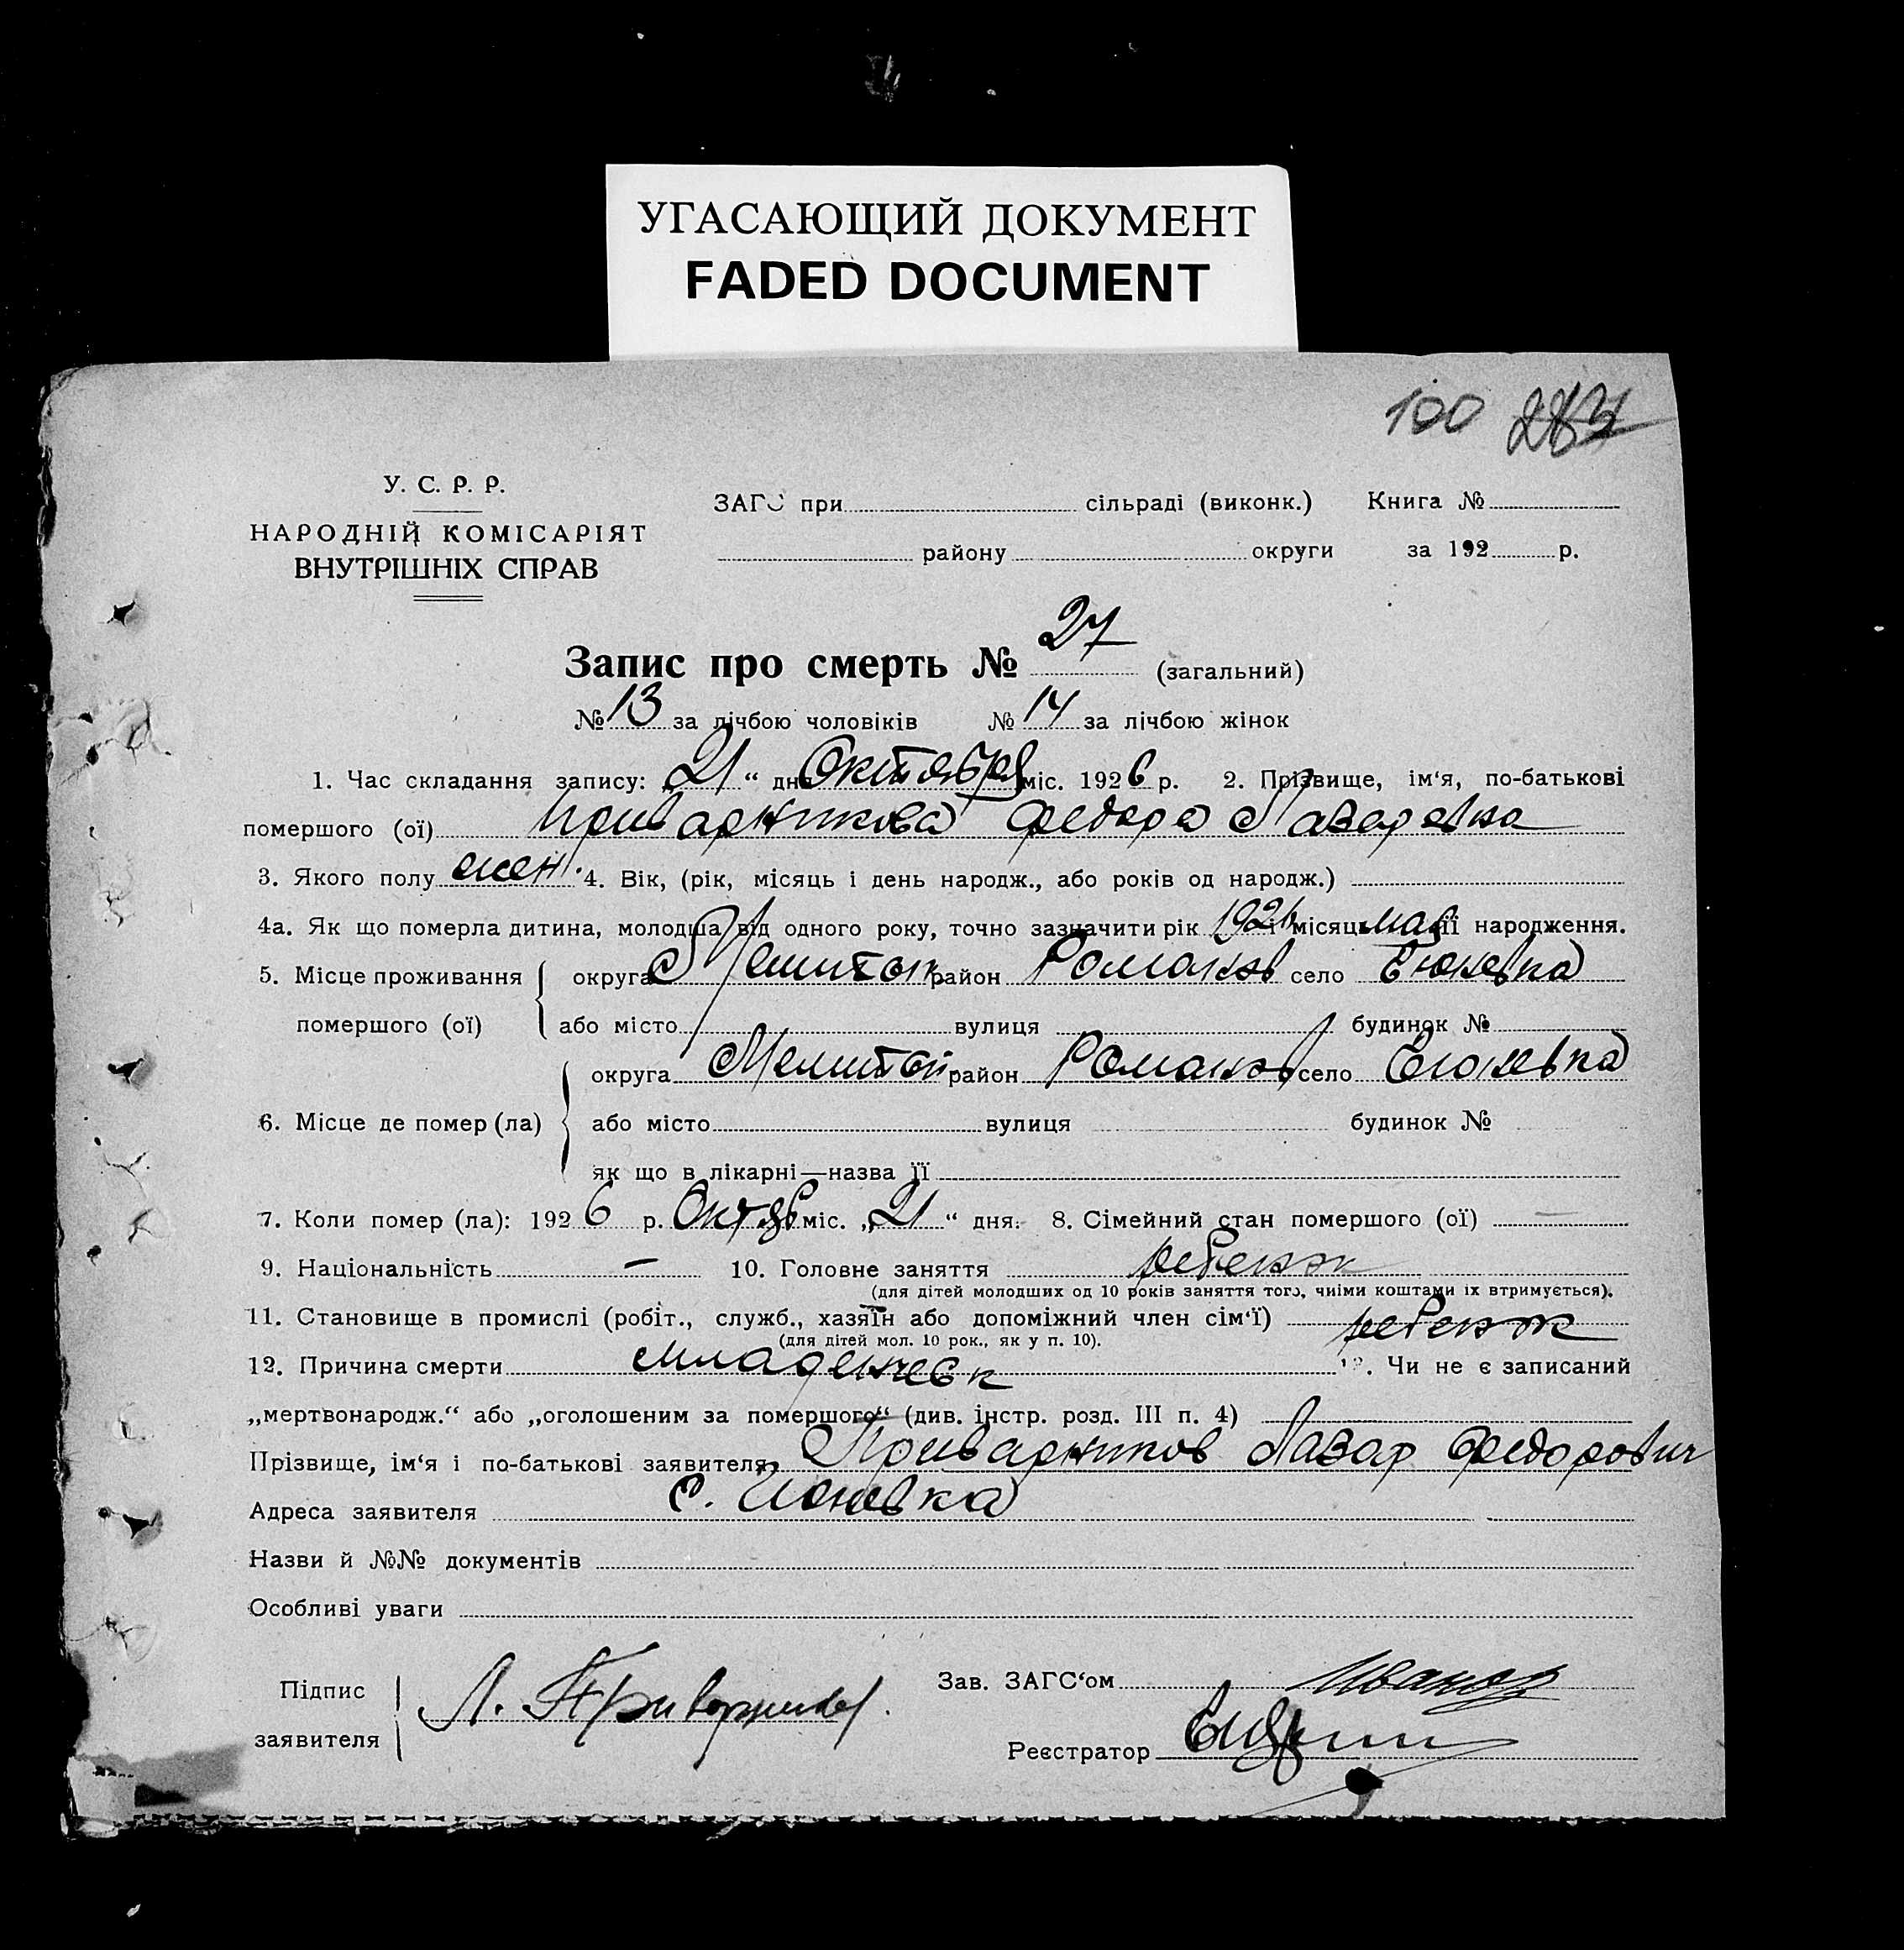 УГАСАЮЩИЙ ДОКУМЕНТ
FADED DOCUMENT
100 283
У. С. Р. Р.
НАРОДНІЙ КОМІСАРІЯТ
ВНУТРІШНІХ СПРАВ
ЗАГС при сільраді (виконк.) Книга №
району округи за 192 р.
Запис про смерть № 27 (загальний)
№ 13 за лічбою чоловіків № 14 за лічбою жінок
1. Час складання запису: „21“ дня Октября міс. 1926 р. 2. Прізвище, ім‘я, по-батькові
помершого (ої) Приварникова Федора Лазаревна
3. Якого полу жен. 4. Вік, (рік, місяць і день народж., або років од народж.)
4а. Як що померла дитина, молодша від одного року, точно зазначити рік 1926 і місяць мая її народження.
5. Місце проживання округа Мелитоп район Романов село
помершого (ої) або місто вулиця будинок №
округа Мелитоп район Романов село
6. Місце де помер (ла) або місто вулиця будинок №
як що в лікарні—назва її
7. Коли помер (ла): 1926 р. Октяб міс. „21“ дня. 8. Сімейний стан помершого (ої) —
9. Національність — 10. Головне заняття ребенок
(для дітей молодших од 10 років заняття того, чиїми коштами їх втримується).
11. Становище в промислі (робіт., служб., хазяїн або допоміжний член сім‘ї) ребенок
(для дітей мол. 10 рок., як у п. 10).
12. Причина смерти младенческ 13. Чи не є записаний
„мертвонародж.“ або „оголошеним за помершого“ (див. інстр. розд. III п. 4)
Прізвище, ім‘я і по-батькові заявителя Приварников Лазар Федорович
Адреса заявителя с.
Назви й №№ документів
Особливі уваги
Підпис
заявителя Л. Приварников
Зав. ЗАГС‘ом Иванов
Реєстратор